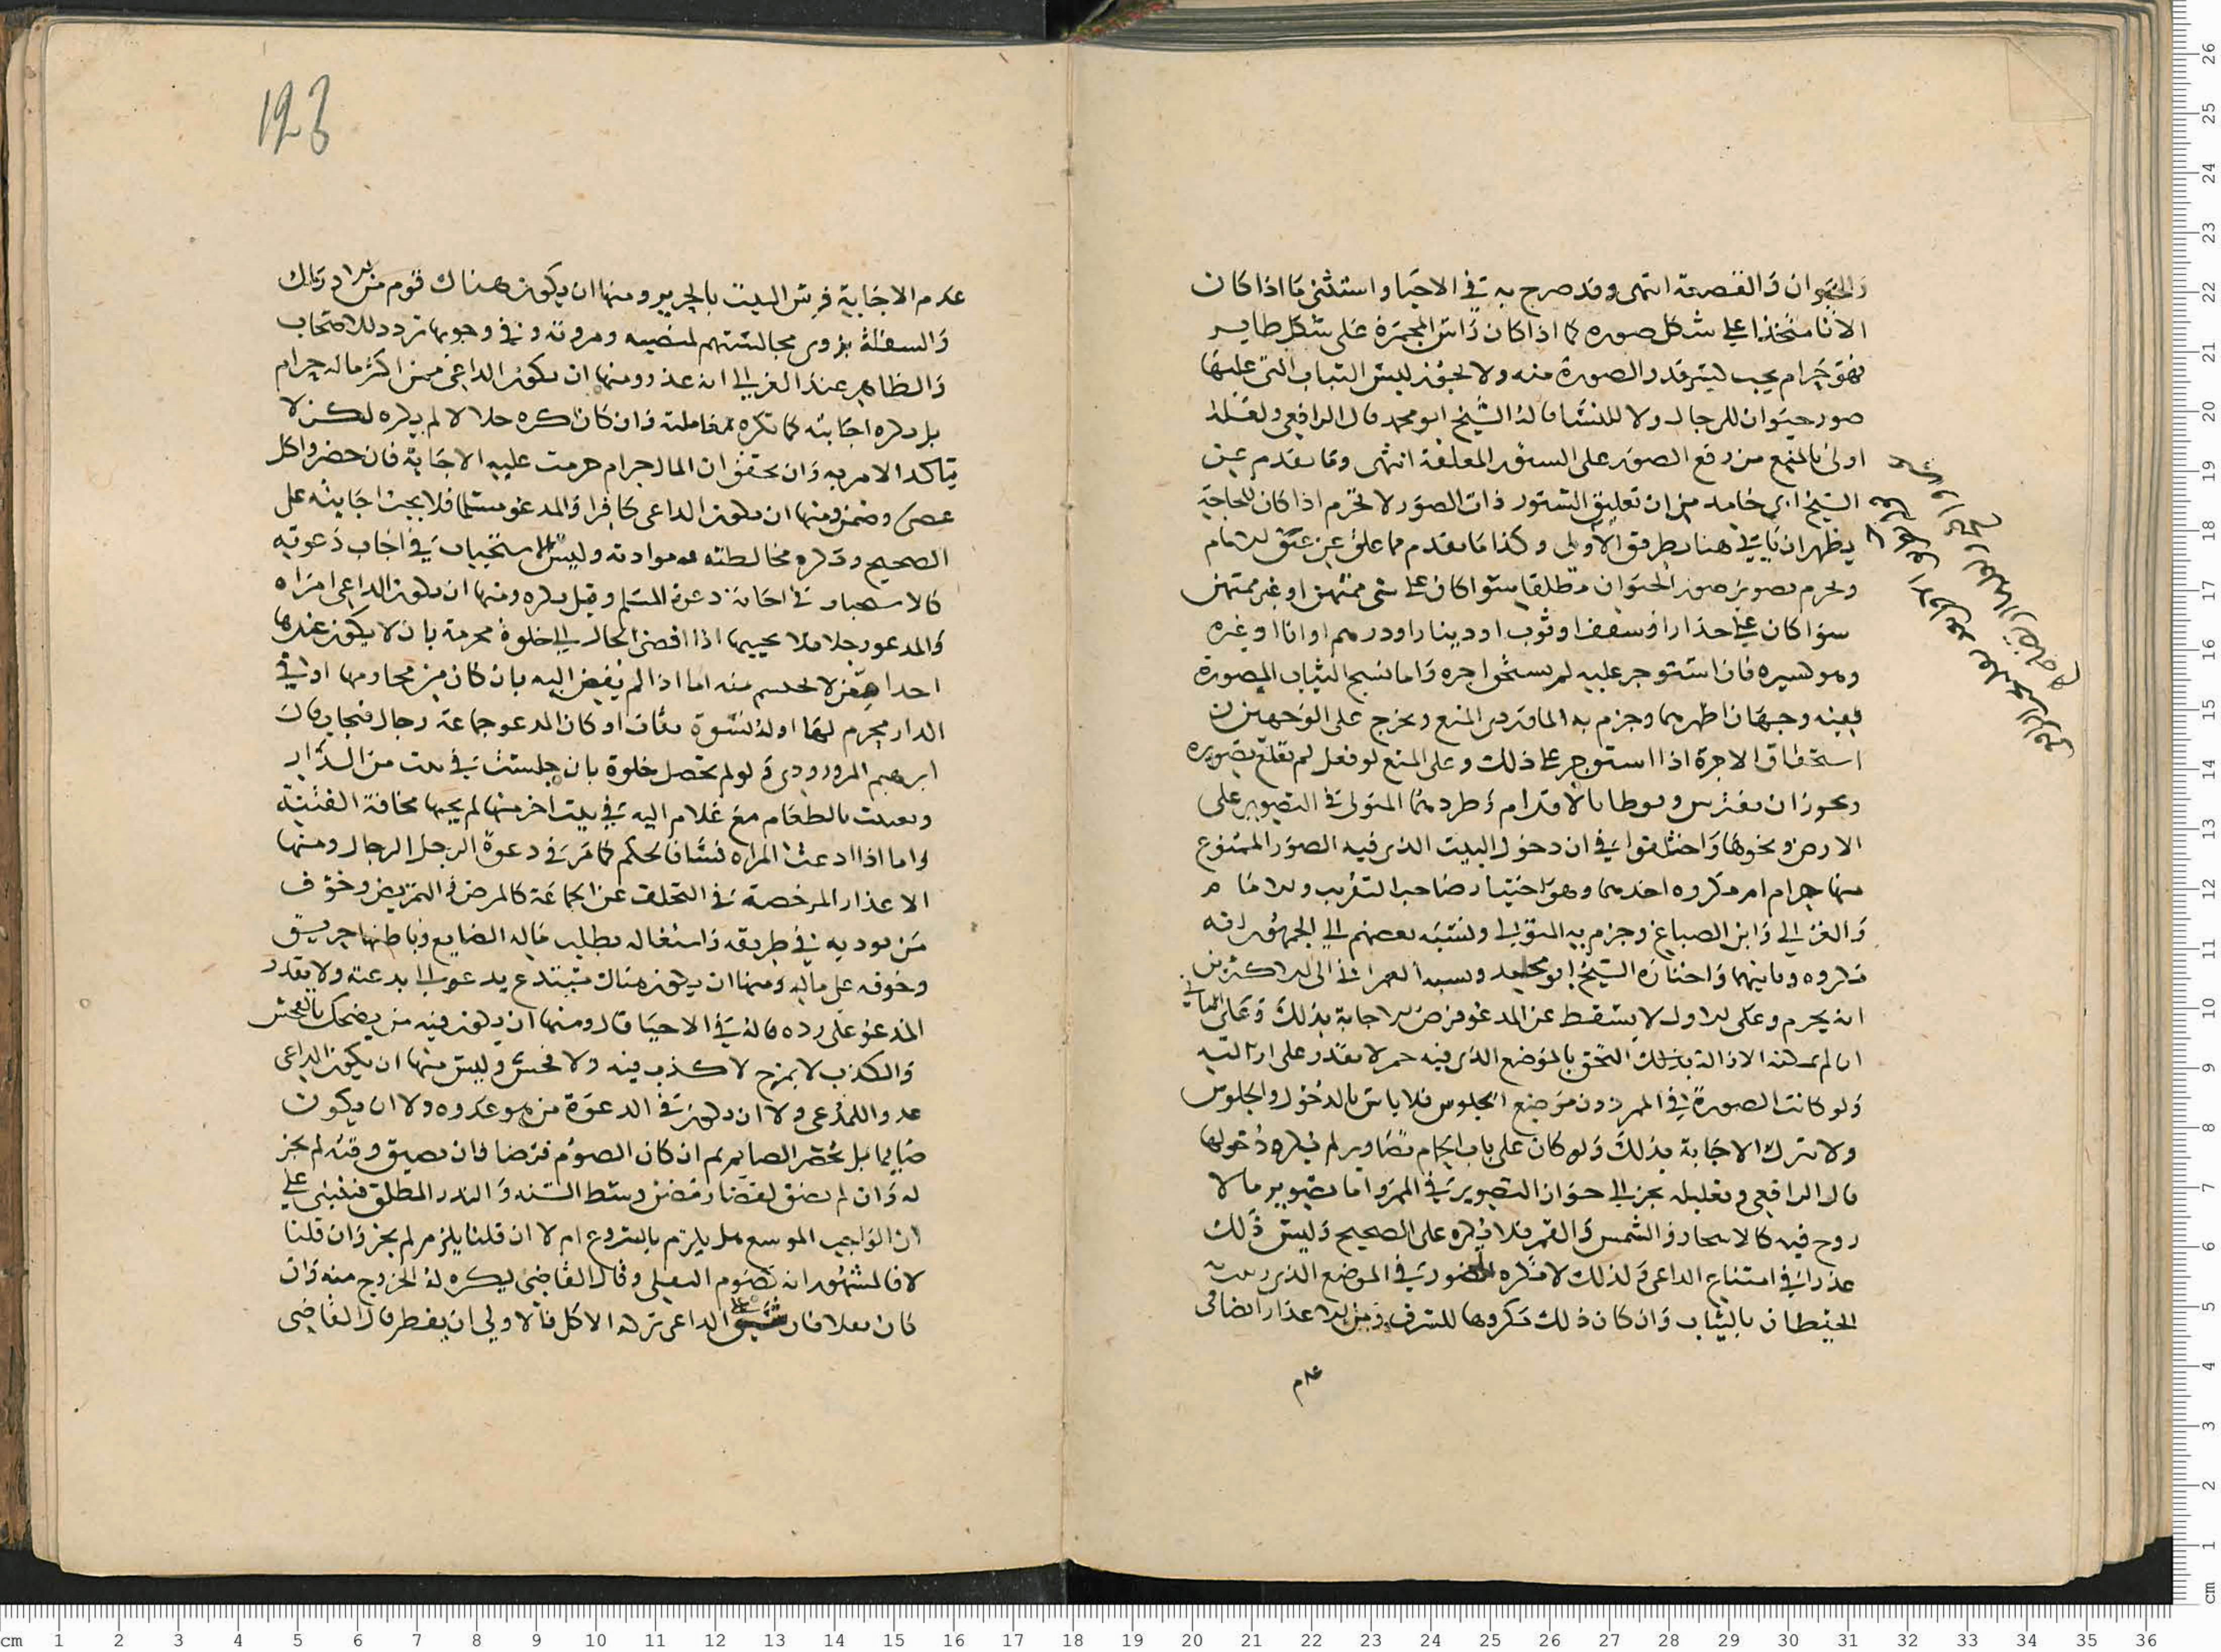 والخوان والقصعة انتهى وقد صرح به في الاحيا واستثنى ما اذا كان
الانا متخذا على شكل صوره كما اذا كان راس المجمرة على شكل طاير
فهو حرام يجب كسر قدر الصورة منه ولا يجوز لبس الثياب التي عليها
صور حيوان للرجال ولا للنسا قاله الشيخ ابو محمد قال الرافعي ولعله
اولى بالمنع من رفع الصور على الستور المعلقة انتهى وما تقدم عن
الشيخ ابي حامد من ان تعليق الستور ذات الصور لا تحرم اذا كان للحاجة
يظهر ان ياتي هنا بطريق الاولى وكذا ما تقدم مما علق عن الامام
ويحرم تصوير صور الحيوان مطلقا سوا كان على شى ممتهن او غير ممتهن
سوا كان على جدار او سقف او ثوب او دينار او درهم او انا او غيره
وهو كبيره فان استوجر عليه لم يستحق اجره واما نسج الثياب المصورة
ففيه وجهان اظهرهما وجزم به الماوردى المنع ويخرج على الوجهين
استحقاق الاجرة اذا استوجر على ذلك وعلى المنع لو فعل لم تقلع تصويره
ويجوز ان يفترش ويوطا بالاقدام وطردهما المتولى في التصوير على
الارض ونحوها واختلفوا في ان دخول البيت الذى فيه الصور الممنوع
منها حرام ام مكروه احدهما وهو اختيار صاحب التقريب والامام
والغزالي وابن الصباغ وجزم به المتولي ونسبه بعضهم الي الجمهور انه
مكروه وثانيهما واختاره الشيخ ابو محمد ونسبه العمرانى الى الاكثرين
انه يحرم وعلى الاول لا يسقط عن المدعو فرض الاجابة بذلك وعلى الثاني
ان لم يمكنه الازالة بذلك التحق بالموضع الذى فيه خمر لا يقدر على ازالته
ولو كانت الصورة في الممر دون موضع الجلوس فلا باس بالدخول والجلوس
ولا تترك الاجابة بذلك ولو كان على باب الحمام تصاوير لم يكره دخولها
قال الرافعي وتعليله يجر الي جواز التصوير في الممر واما تصوير ما لا
روح فيه كالاشجار والشمس والقمر فلا يكره على الصحيح وليس ذلك
عذرا في امتناع الداعى وكذلك لا تكره الحضور في الموضع الذى زينت
الحيطان بالثياب وان كان ذلك مكروها للسرف ومن الاعذار ايضا فى
عدم
123
عدم الاجابة فرش البيت بالحرير ومنها ان يكون هناك قوم من الاراذل
والسفلة يزرى مجالستهم لمنصبه ومروته وفي وجوبها تردد للاصحاب
والظاهر عند الغزالي انه عذر ومنها ان يكون الداعى ممن اكثر ماله حرام
بل يكره اجابته كما تكره معاملته وان كان اكثره حلالا لم يكره لكن لا
يتاكد الامر به وان تحقق ان المال حرام حرمت عليه الاجابة فان حضر واكل
عصى وضمن ومنها ان يكون الداعى كافرا والمدعو مسلما فلا يجب اجابته على
الصحيح وتكره مخالطته وموادته وليس الاستحباب في اجاب دعوته
كالاستحباب في اجابة دعوة المسلم وقيل يكره ومنها ان يكون الداعى امراه
والمدعو رجلا فلا يجيبها اذا افضى الحال الي خلوة محرمة بان لا يكون عندها
احد او من لا تحتشم منه اما اذا لم يفض اليه بان كان من محارمها او في
الدار محرم لها او له نسوة ثقات او كان المدعو جماعة رجال فتجاب قال
ابرهيم المرورودى ولو لم تحصل خلوة بان جلست في بيت من الدار
وبعثت بالطعام مع غلام اليه في بيت اخر منها لم يجبها مخافة الفتنة
واما اذا دعت المراه نسا فالحكم كما مر في دعوة الرجل الرجال ومنها
الاعذار المرخصة في التخلف عن الجماعة كالمرض والتمريض وخوف
من يوديه في طريقه واشتغاله بطلب ماله الضايع وباطنها حريق
وخوفه على ماله ومنها ان يكون هناك مبتدع يدعو الي بدعته ولا يقدر
المدعو على رده قاله في الاحيا قال ومنها ان يكون فيه من يضحك بالفحش
والكذب لا بمزح لا كذب فيه ولا فحش وليس منها ان يكون الداعى
عدو اللمدعى ولا ان يكون في الدعوة من هو عدوه ولا ان يكون
صايما بل يحضر الصايم ثم ان كان الصوم فرضا فان تضيق وقته لم يجز
له وان لم تضق كقضا رمضان وسط السنه والنذر المطلق فينبنى على
ان الواجب الموسع هل يلزم بالشروع ام لا ان قلنا يلزم لم يجز وان قلنا
لا فالمشهور انه كصوم النفلى وقال القاضى يكره له الخروج منه وان
كان نفلا فان شق على الداعى تركه الاكل فالاولى ان يفطر قال القاضى